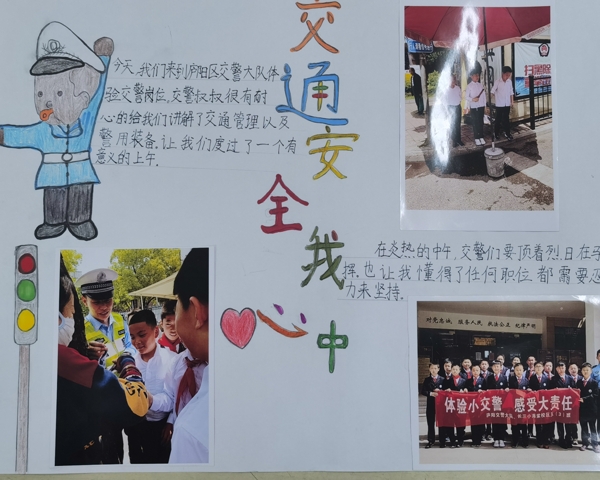 交通安全我心中
今天,我们来到庐阳区交警大队体
验交警岗位,交警叔叔很有耐
心的给我们讲解了交通管理以及
警用装备.让我们度过了一个有
意义的上午.
在炎热的中午,交警们要顶着烈日在
挥.也让我懂得了任何职位都需要
力来坚持.
对党忠诚 服务人民 执法公正 纪律严明
体验小交警 感受大责任